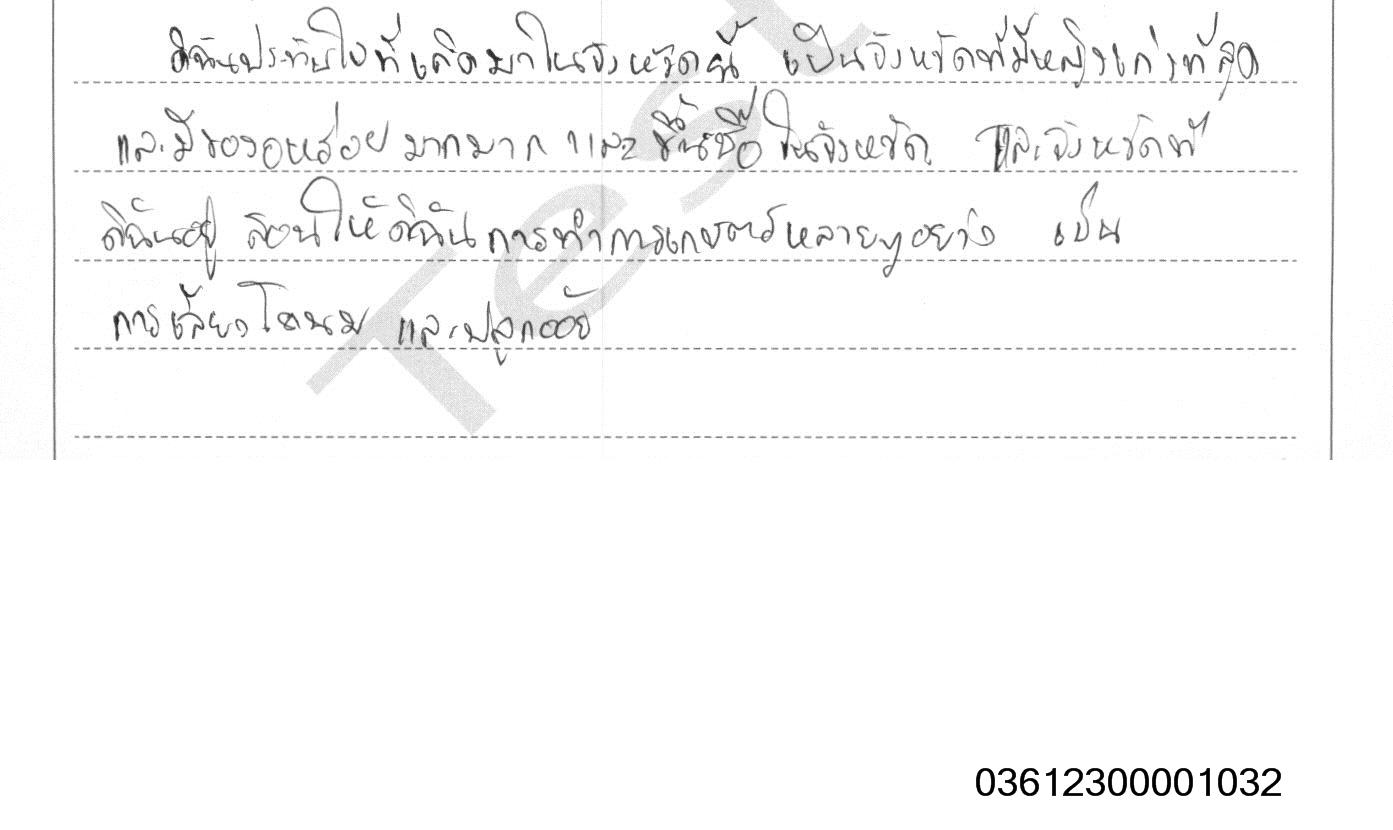 ดิฉันประทับใจที่เกิดมาในจังหวัดนี้ เป็นจังหวัดที่มีหญิงเก่งที่สุด
และมีของอหร่อยมากมาก และขึ้นชื่อในจังหวัด และจังหวัดที่
ดิฉันอยู่ สอนให้ดิฉันการทำการเกษตรหลายๆอย่าง เป็น
การเลี้ยงโคนม และปลูกออ้ย
Test
03612300001032